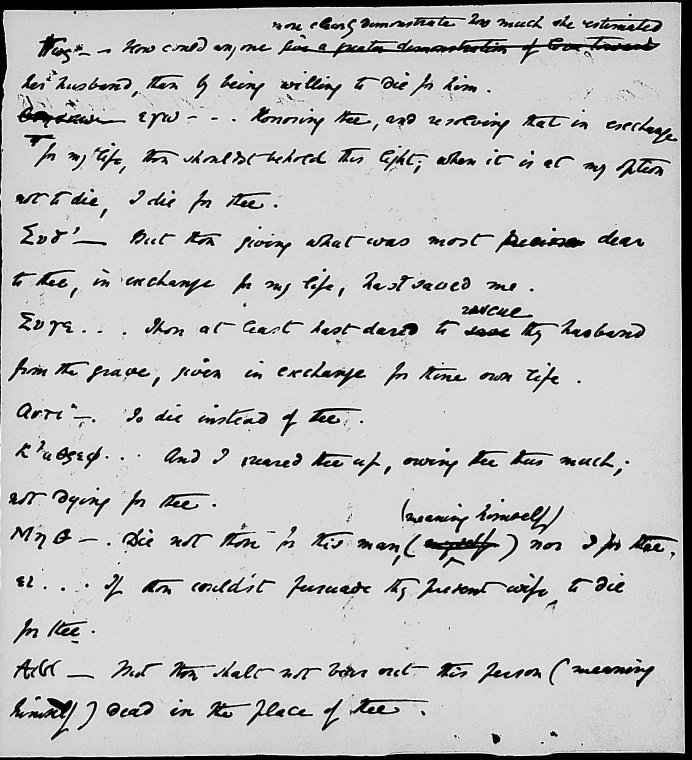 more clearly demonstrate how much she estimated
Πως – – How could anyone give a greater demonstration of love toward
her husband, than by being willing to die for him.
εγω - - . Honoring thee, and resolving that in exchange
for my life, thou shouldst behold this light; when it is at my option
not to die, I die for thee.
Συδ' — But thou giving what was most precious dear
to thee, in exchange for my life, hast saved me.
rescue
Συγε . . . Thou at least hast dared to save thy husband
from the grave, given in exchange for thine own life.
Αντι – . To die instead of thee.
Κ'αθρεφ . . . And I reared thee up, owing thee thus much;
not dying for thee.
(meaning himself)
Μη θ – . Die not thou for this man, (myself) nor I for thee.
ει . . . If thou couldst persuade thy present wife, to die
for thee.
Αλλ — But thou shalt not bear out this person (meaning
himself) dead in the place of thee.